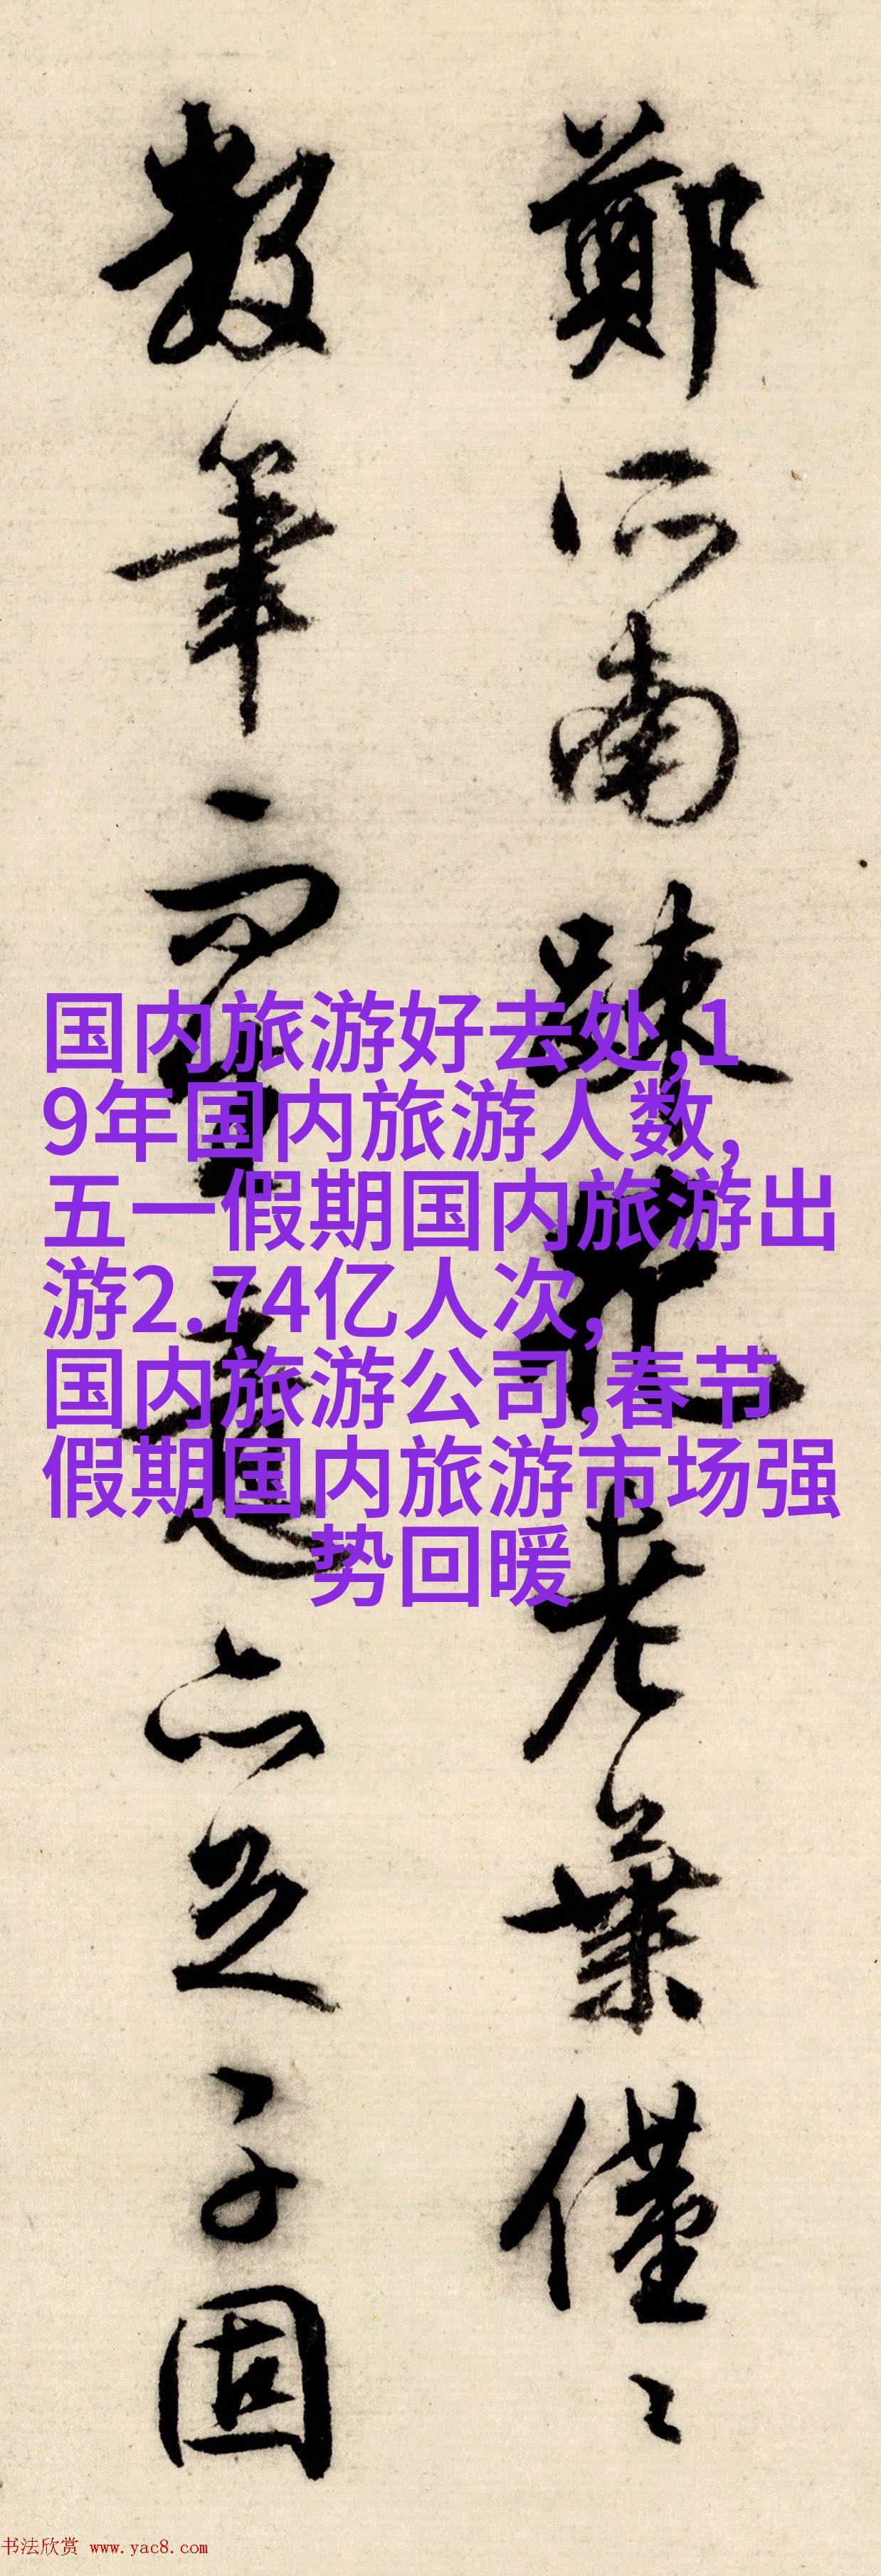 鄭所南疎花老葉僅〻
數筆而筆意亦足子固
国内旅游好去处,1
9年国内旅游人数,
五一假期国内旅游出
游2.74亿人次,
国内旅游公司,春节
假期国内旅游市场强
势回暖
书法欣赏 www.yac8.com